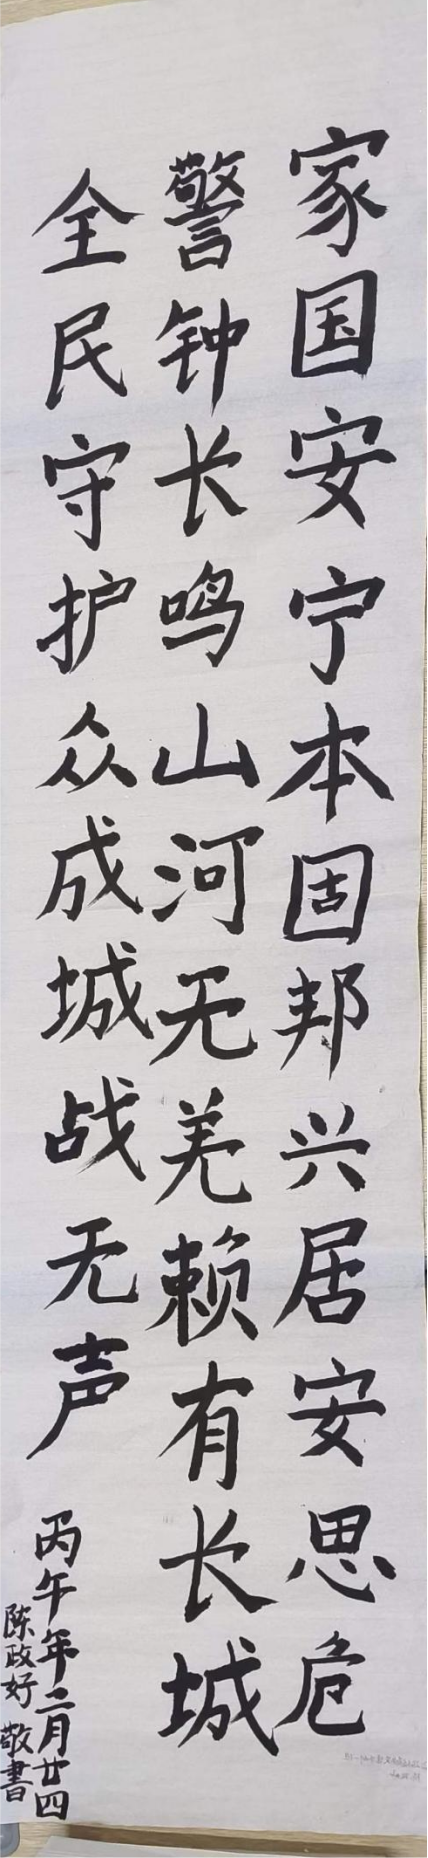 家国安宁本固邦兴居安思危
警钟长鸣山河无羌赖有长城
全民守护众成城战无声
丙午年二月廿四
陈政好 敬書